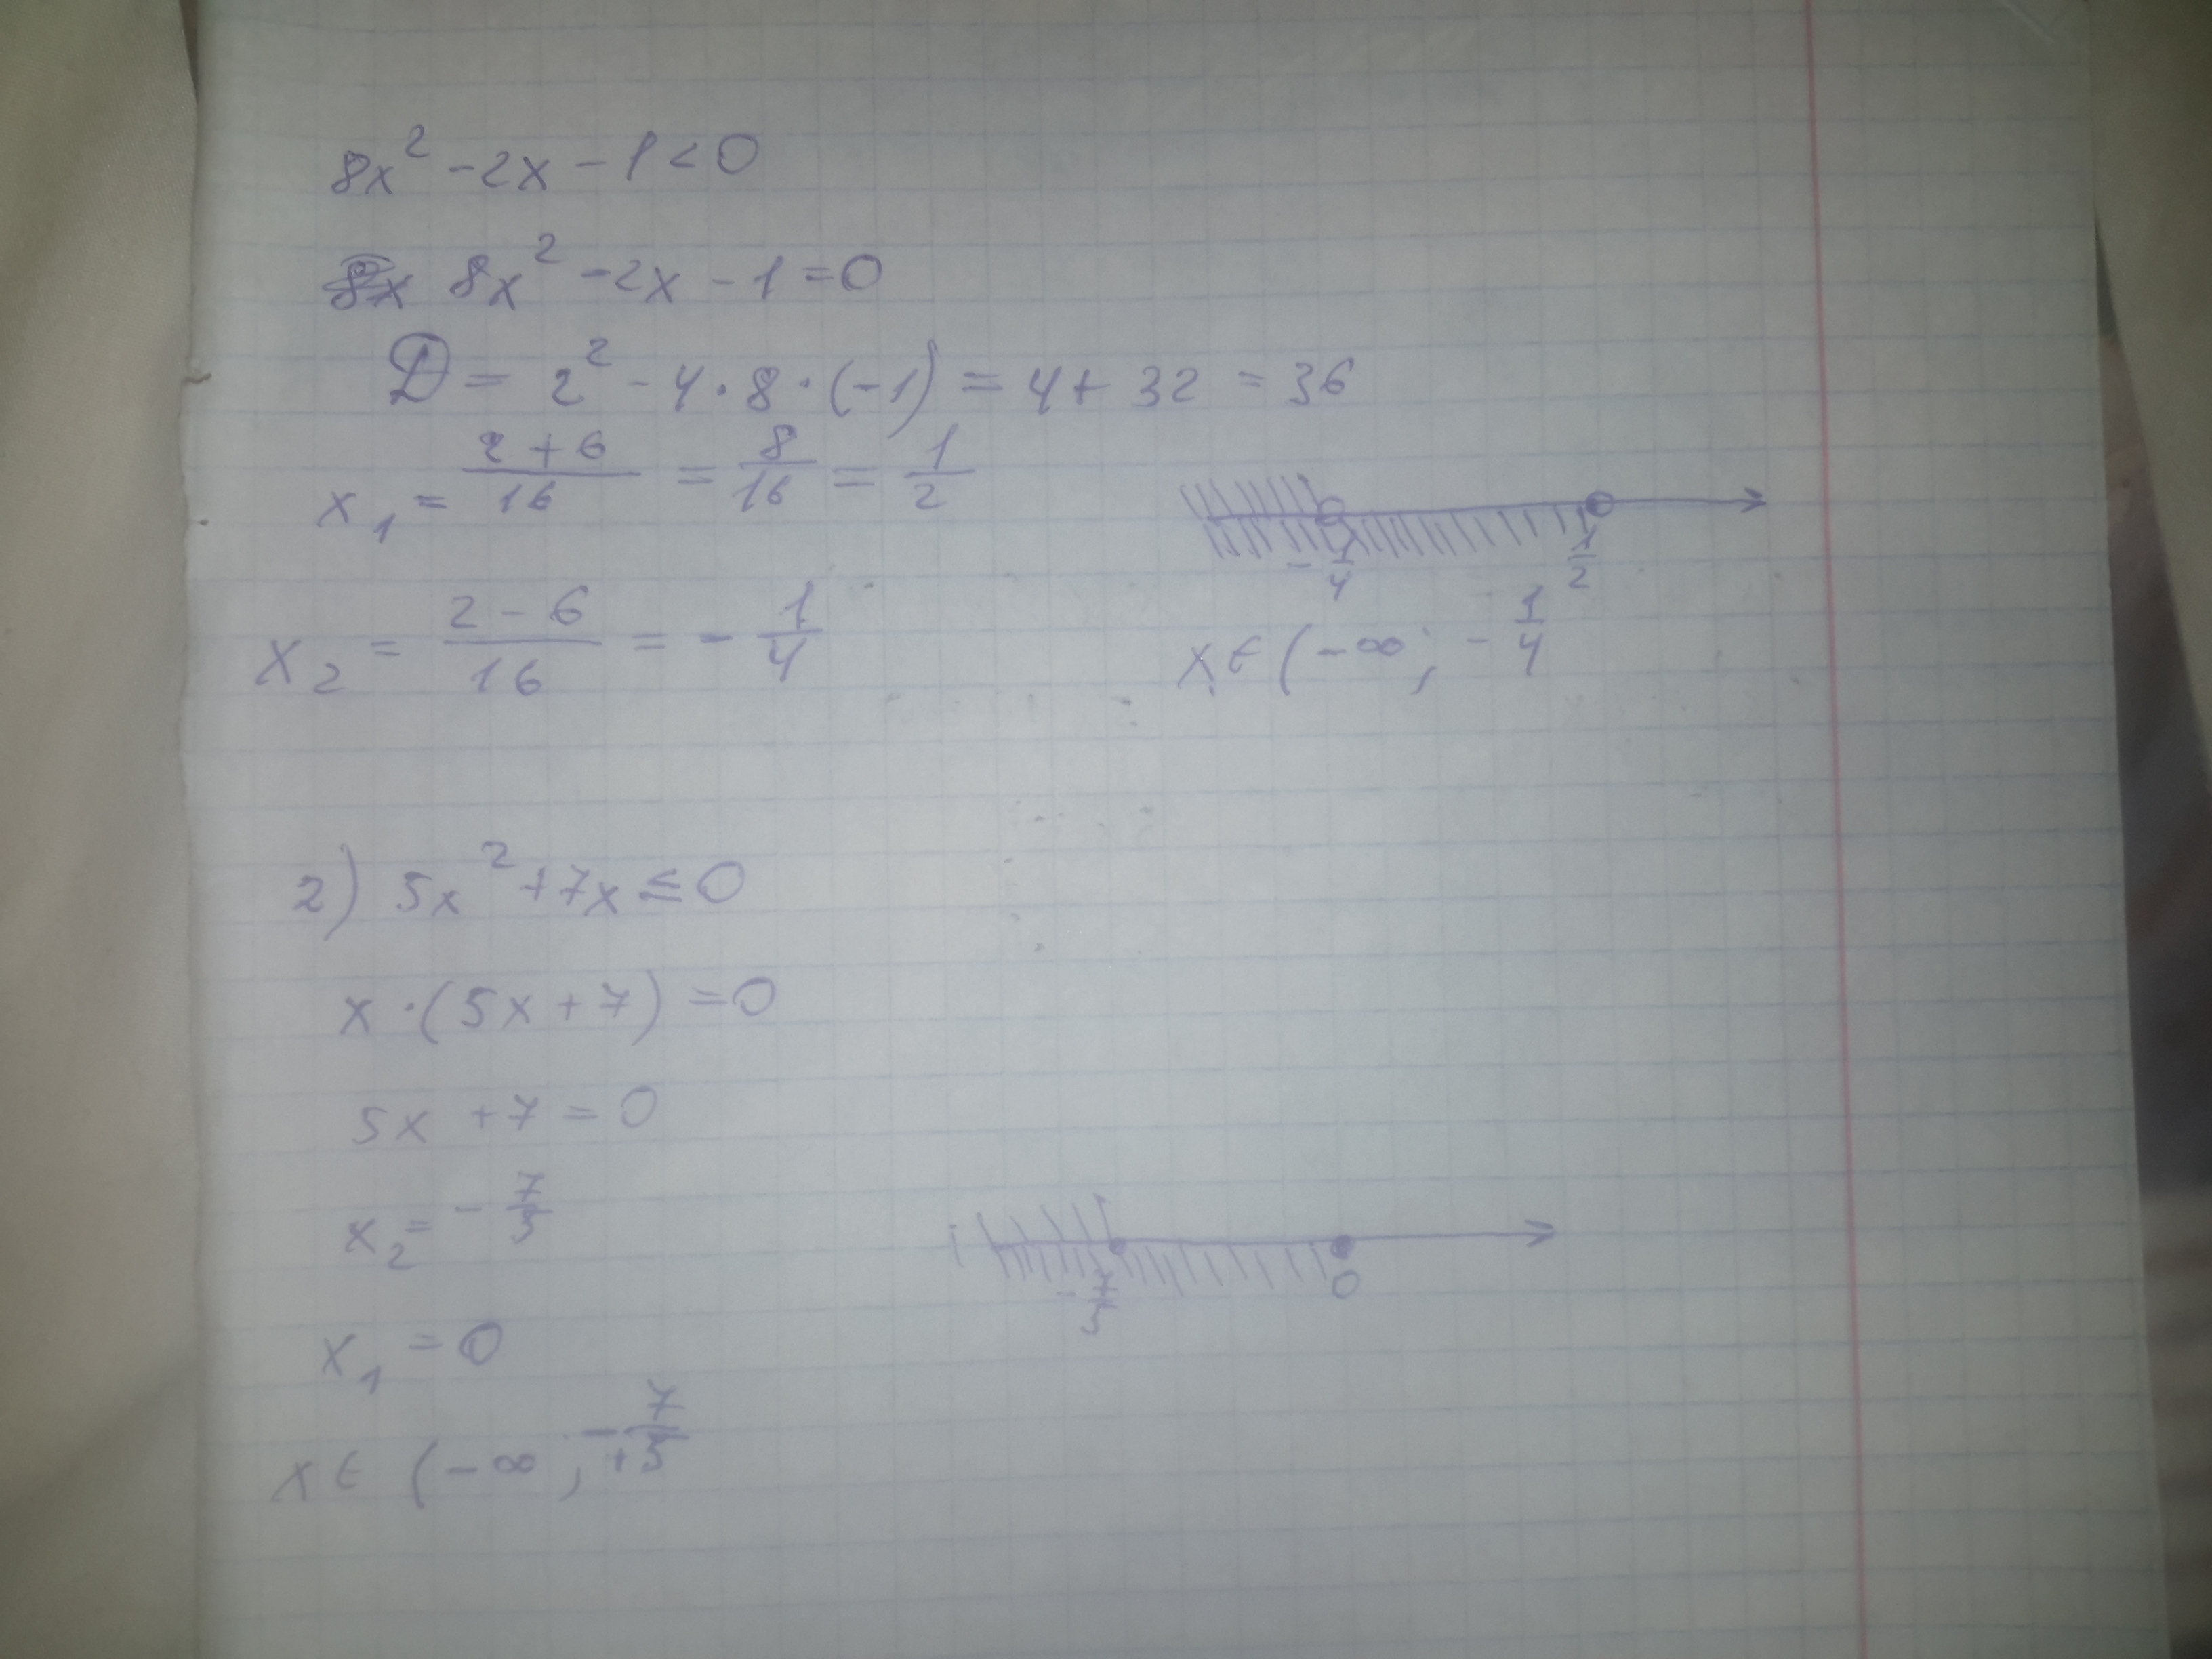 8x² - 2x - 1 < 0
8x² - 2x - 1 = 0
D = 2² - 4 · 8 · (-1) = 4 + 32 = 36
x₁ = (2 + 6)/16 = 8/16 = 1/2
-1/4 1/2
x₂ = (2 - 6)/16 = -1/4
x ∈ (-∞; -1/4
2) 5x² + 7x ≤ 0
x · (5x + 7) = 0
5x + 7 = 0
x₂ = -7/5
-7/5 0
x₁ = 0
x ∈ (-∞; -7/5